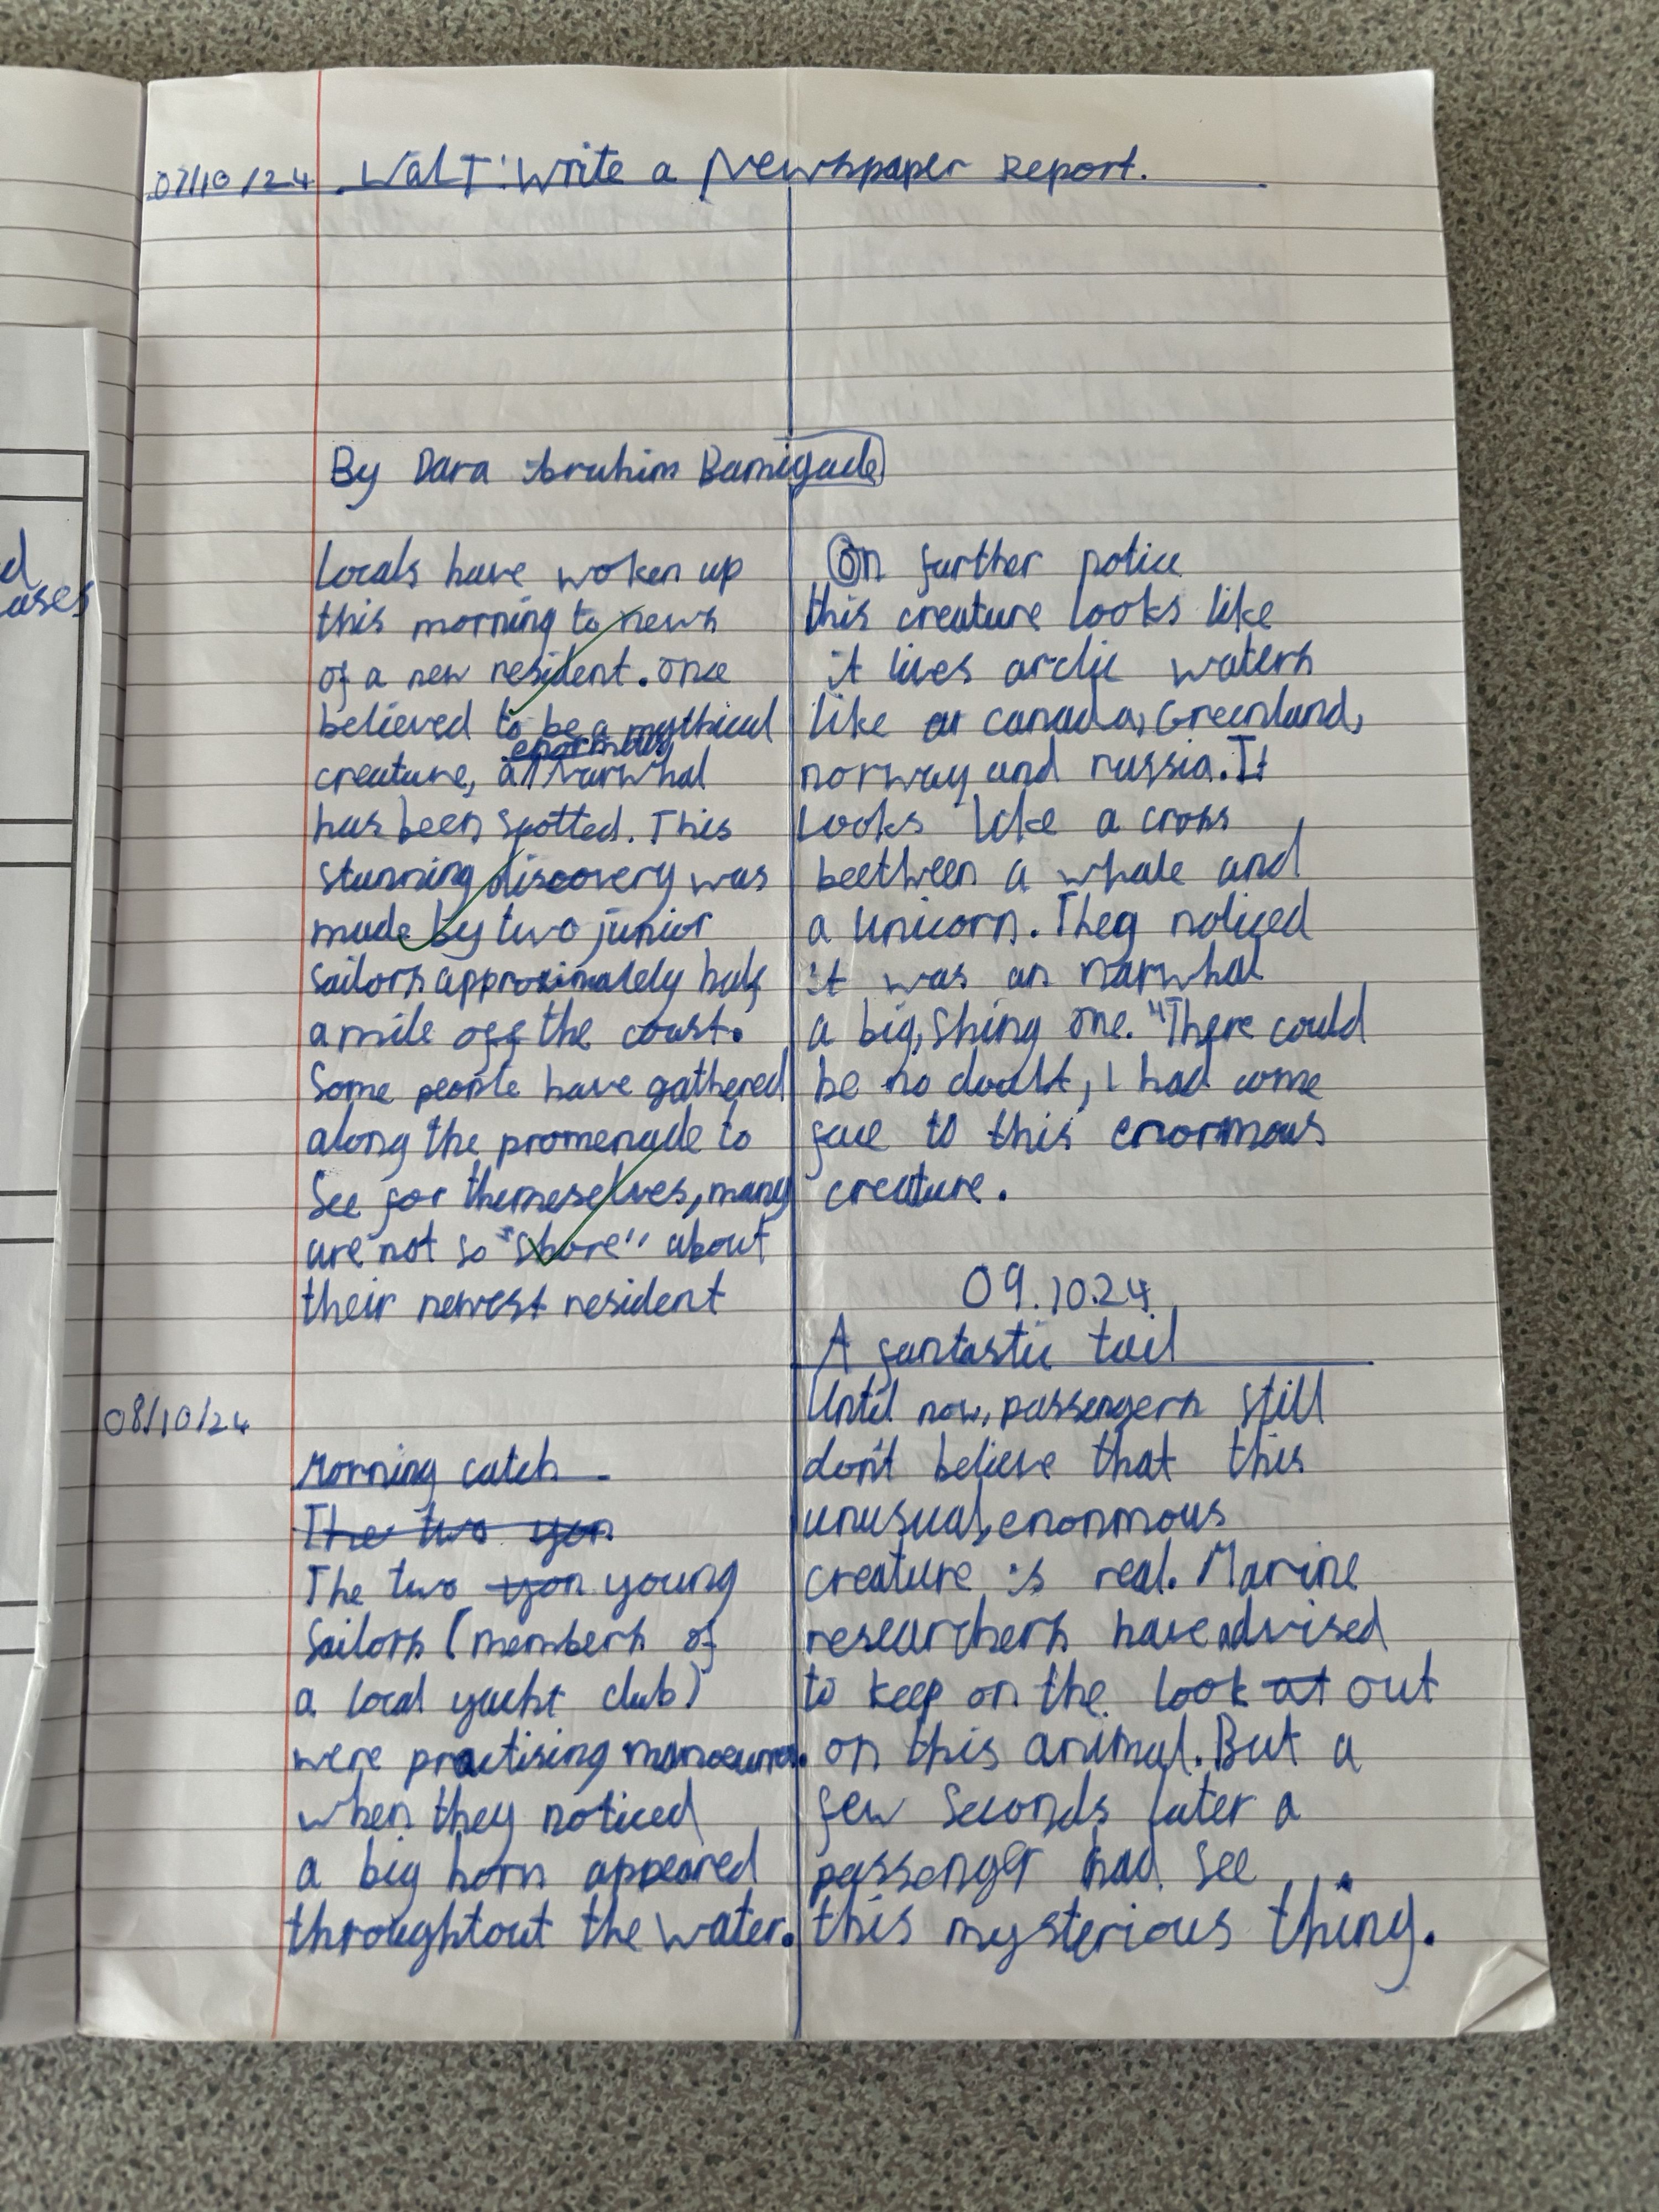 07/10/24 WALT: Write a Newspaper Report.
By Dara Ibrahim Bamigade
Locals have woken up
this morning to news
of a new resident. Once
believed to be a mythical
enormous
creature, a Narwhal
has been spotted. This
stunning discovery was
made by two junior
sailors approximately half
a mile off the coast.
Some people have gathered
along the promenade to
See for themeselves, many
are not so "shore" about
their newest resident
08/10/24
Morning catch
The two yon
The two yon young
Sailors (members of
a local yacht club)
were practising
when they noticed
a big horn appeared
throughtout the water.
On further notice
this creature looks like
it lives arctic waters
like canada, Greenland,
norway and russia. It
looks like a cross
beetween a whale and
a unicorn. They noticed
it was an narwhal
a big, shing one. "There could
be no doubt, I had come
face to this enormous
creature.
09.10.24
A fantastic tail
Until now, passengers still
don't believe that this
unusual, enonmous
creature is real. Marine
researchers have advised
to keep on the look at out
on this animal. But a
few seconds later a
passenger had see
this mysterious thing.
d
ases